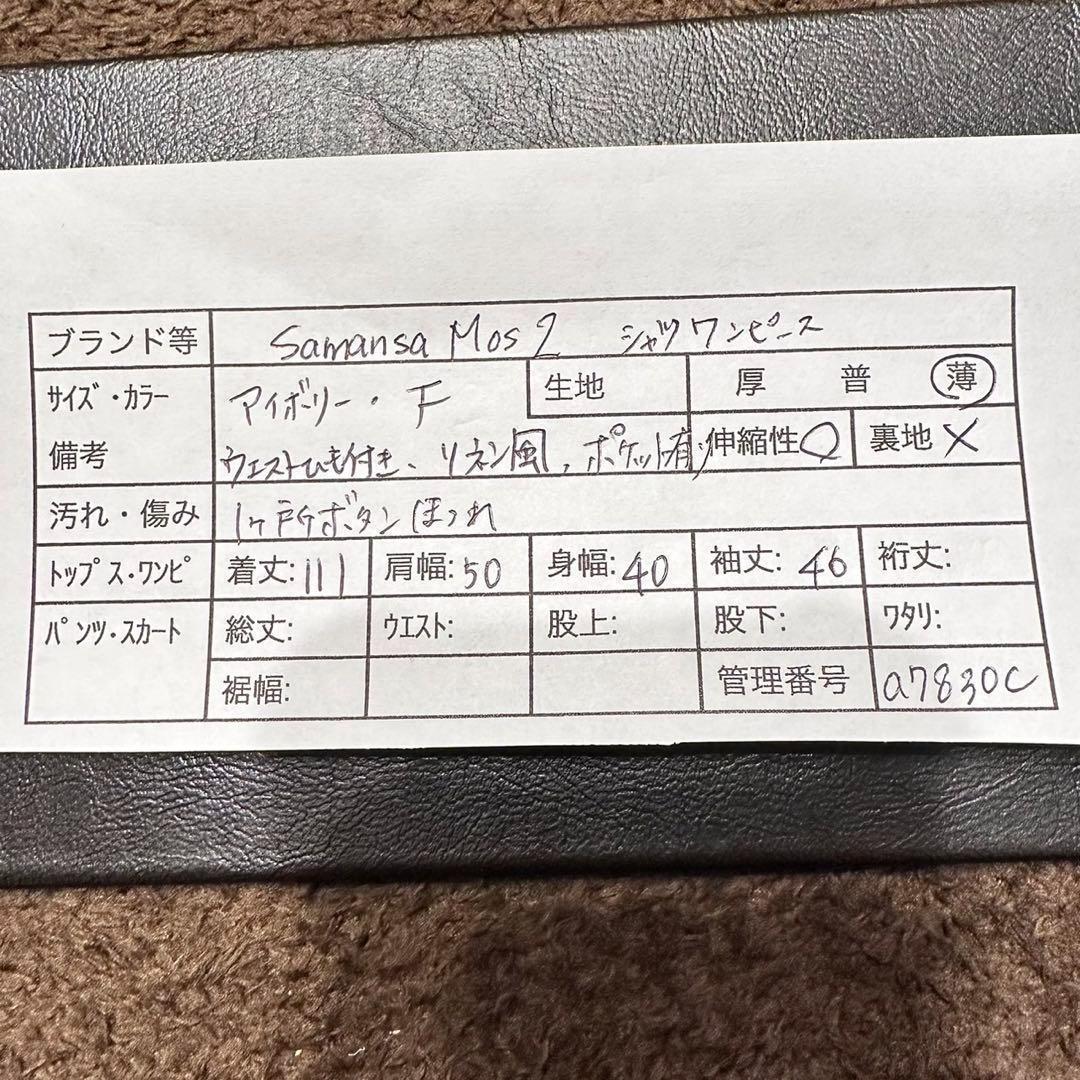 ブランド等 Samansa Mos2 シャツワンピース
サイズ・カラー アイボリー・F 生地 厚 普 薄
備考 ウエストひも付き、リネン風、ポケット有り 伸縮性○ 裏地×
汚れ・傷み 1ヶ所ボタンほつれ
トップス・ワンピ 着丈:111 肩幅:50 身幅:40 袖丈:46 裄丈:
パンツ・スカート 総丈: ウエスト: 股上: 股下: ワタリ:
裾幅: 管理番号 a7830c